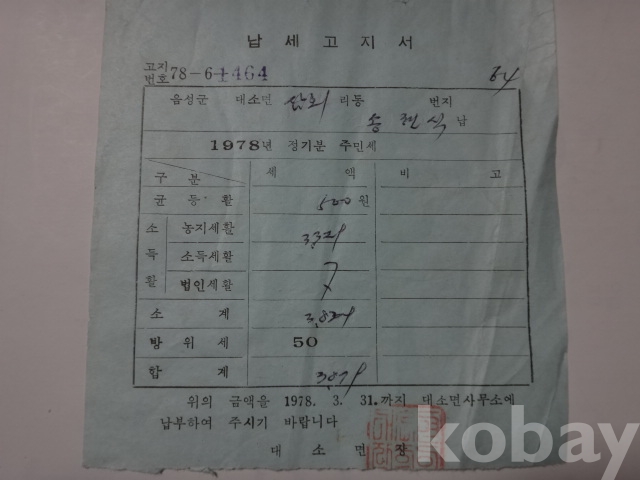 납세고지서
고지번호 78-6-1464
64
음성군 대소면 삼호 리동 번지
송 식 납
1978년 정기분 주민세
구분 세액 비고
균등활 500원
소득활 농지세활 3,329
소득세활
법인세활
소계 3,829
방위세 50
합계 3,879
위의 금액을 1978. 3. 31.까지 대소면사무소에
납부하여 주시기 바랍니다
대소면장
kobay